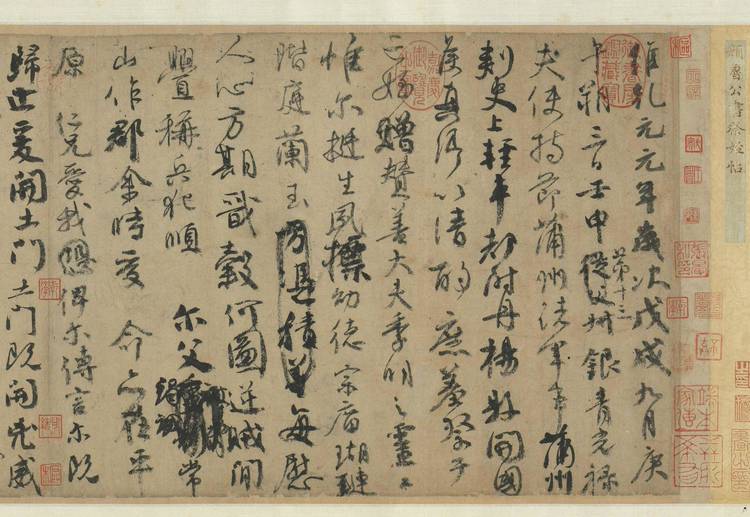 魯公書祭姪帖
維乾元元年歲次戊戌九月庚
午朔三日壬申第十三叔銀青光祿
夫使持節蒲州諸軍事蒲州
刺史上輕車都尉丹楊縣開國
侯真卿以清酌庶羞祭于
亡姪贈贊善大夫季明之靈曰
惟爾挺生夙標幼德宗廟瑚璉
階庭蘭玉每慰
人心方期戩穀何圖逆賊間
釁稱兵犯順爾父竭誠常
山作郡余時受命亦在平
原仁兄愛我俾爾傳言爾既
歸止爰開土門土門既開凶威